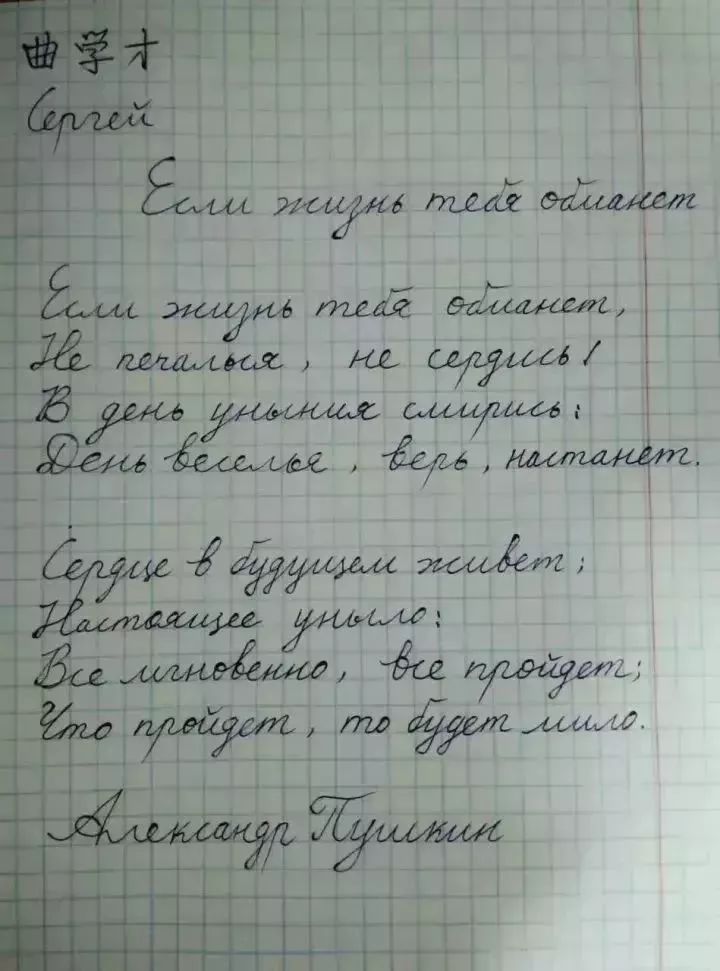 曲学才
Сергей
Если жизнь тебя обманет
Если жизнь тебя обманет,
Не печалься, не сердись!
В день уныния смирись:
День веселья, верь, настанет.
Сердце в будущем живет;
Настоящее уныло:
Все мгновенно, все пройдет;
Что пройдет, то будет мило.
Александр Пушкин